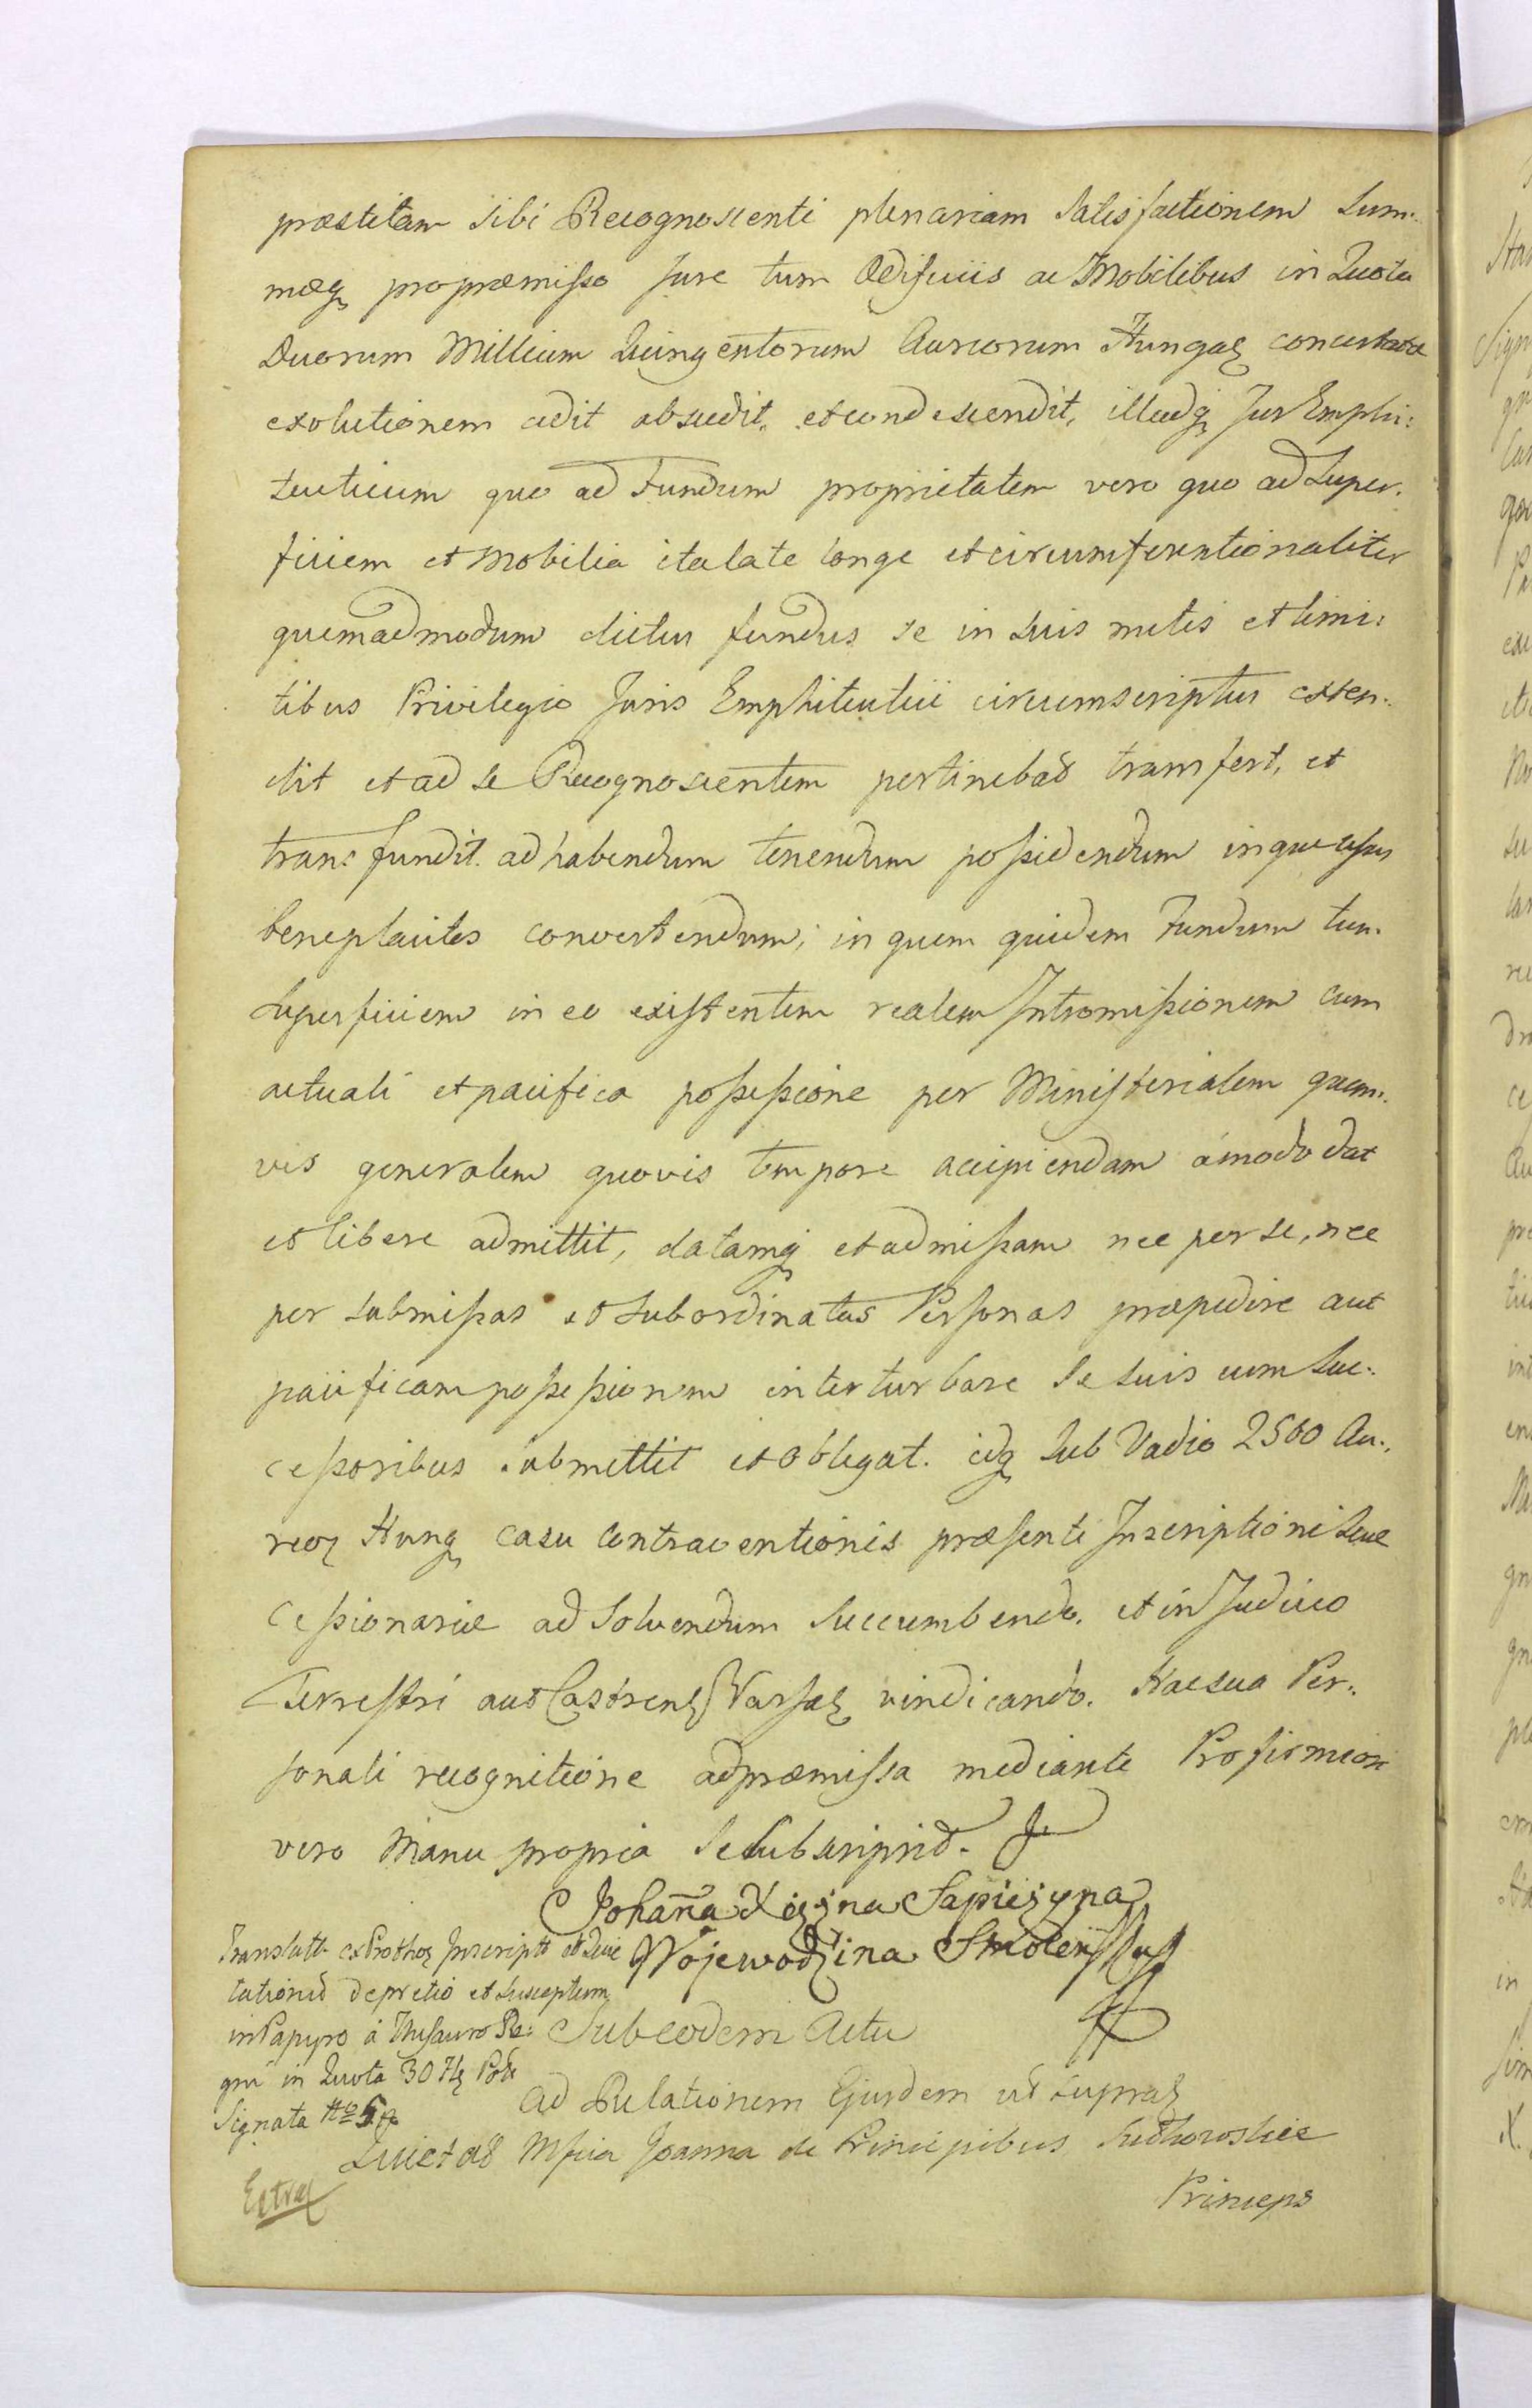 præstitam sibi Recognoscenti plenariam Satisfactionem Sum:
mæq propræmisso Jure tum Ædificiis ac Mobilibus in Quota
Duorum Millium Quingentorum Aureorum Hungal
exolutionem cedit abscedit, et condescendit, illudq Jus Emphi:
teuticum quo ad Fundum proprietatem vero quo ad Super.
ficiem et Mobilia ita late longe et circumferentionaliter
quemadmodum dictus fundus se in suis metis et limi:
tibus Privilegio Juris Emphiteutici circumscriptus exten:
dit et ad se Recognoscentem pertinebat transfert, et
transfundit. ad habendum tenendum possidendum inque usus
beneplacitos convertendum; in quem quidem Fundum tum
Superficiem in eo existentem realem Intromissionem cum
actuali et pacifica possessione per Ministerialem quem:
vis generalem quovis tempore accipiendam ámodo dat
et libere admittit, datamq et admissam nec per se, nec
per submissas et Subordinatas Personas præpedire aut
pacificam possessionem interturbare Se suis cum Suc:
cessoribus submittit et obligat. idq Sub Vadio 2500 Au:
reor Hung casu Contraventionis præsenti Inscriptioni Suæ
Cessionariæ ad Solvendum Succumbendo. et in Judicio
Terrestri aut Castrens Varsal vindicando. Hac sua Per:
sonali recognitione ad præmissa mediante Pro firmiori
vero Manu propria Se Subscripsit.
Johanna Xiężna Sapieżyna
Wojewodzina Smoleńska
Translatt ex Prothol Inscript et Quie
tationis de pretio et susceptum
in Papyro á Thesauro Re:
gni in Quota 30 Fl Pol
Signata
Sub eodem Actu
Ad Relationem Ejusdem ut supra
Quietat Mfica Joanna de Principibus Sułkowskie
Princeps
Extra